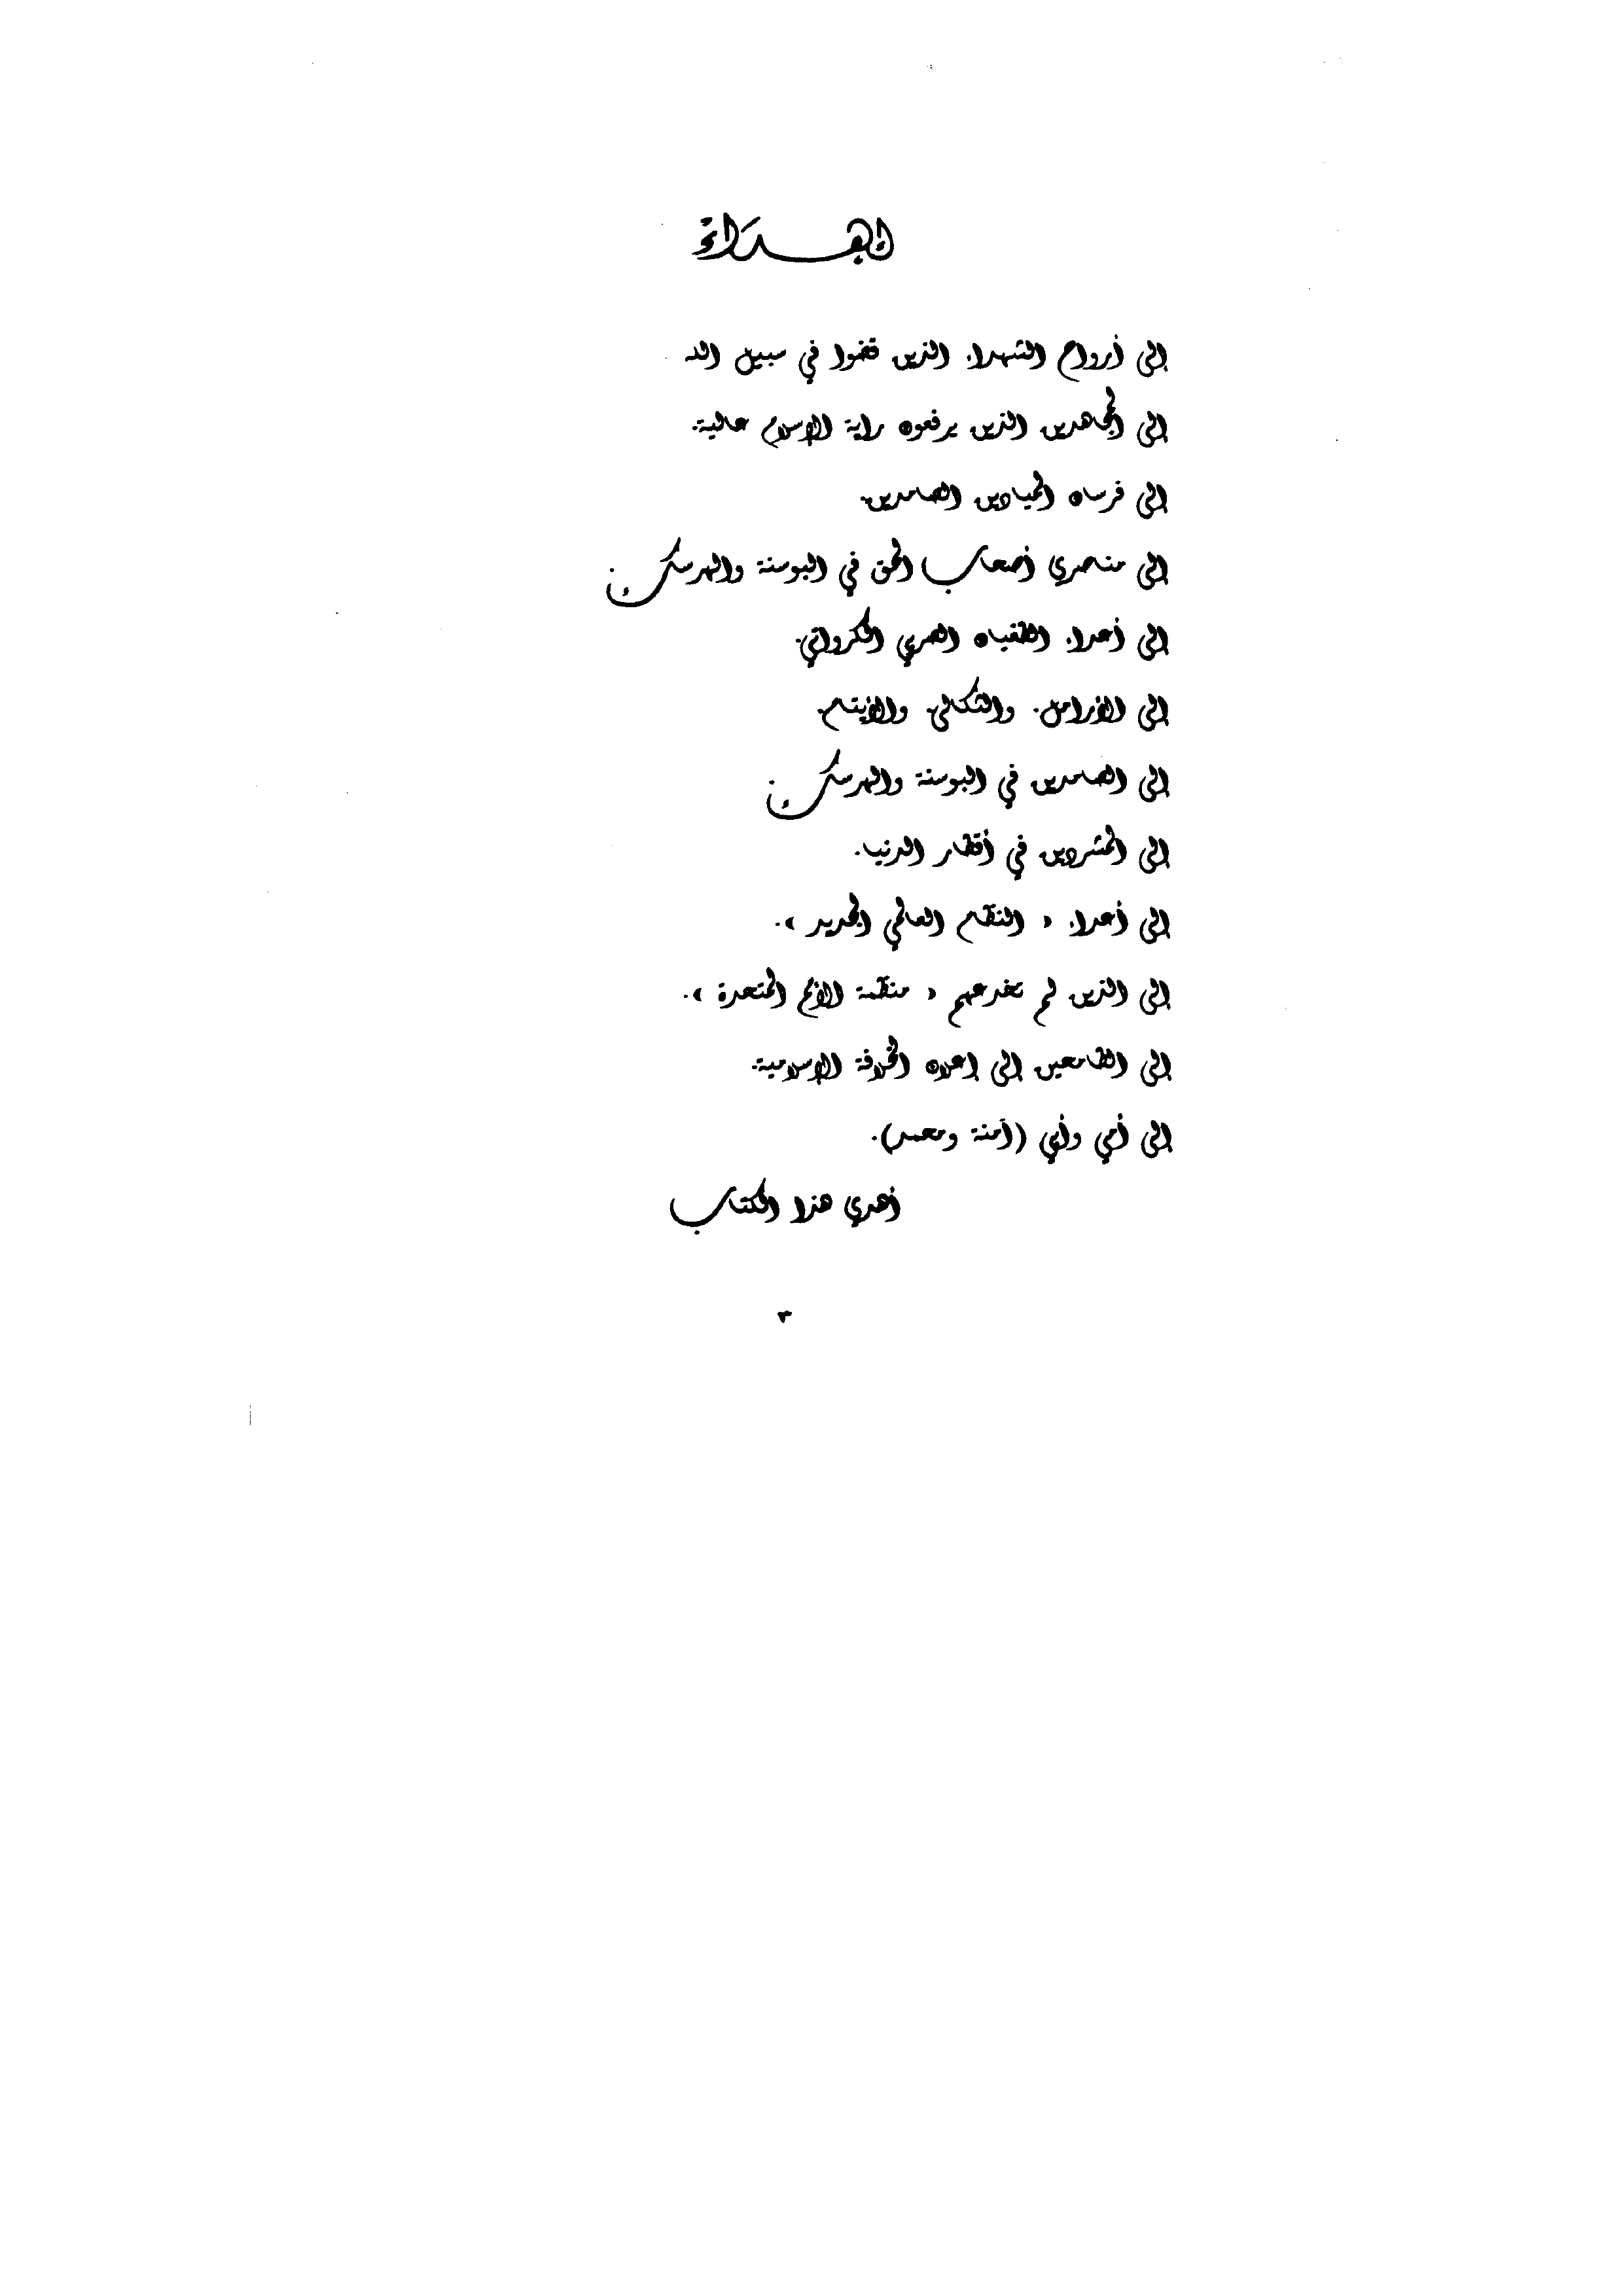 إهداء
إلى أرواح الشهداء الذين قضوا في سبيل الله
إلى المجاهدين الذين يرفعون راية الإسلام عالية.
إلى فرسان الميادين الصامدين.
إلى مناصري أصحاب الحق في البوسنة والهرسك.
إلى أعداء الطغيان الصربي الكرواتي.
إلى الأرامل. والثكالى. والأيتام.
إلى الصامدين في البوسنة والهرسك.
إلى المشردين في أقطار الدنيا.
إلى أعداء « النظام العالمي الجديد ».
إلى الذين لم تخدعهم « منظمة الأمم المتحدة ».
إلى الطامعين إلى إعلان الخلافة الإسلامية.
إلى أمي وأبي (آمنة ومحمد).
أهدي هذا الكتاب
٣